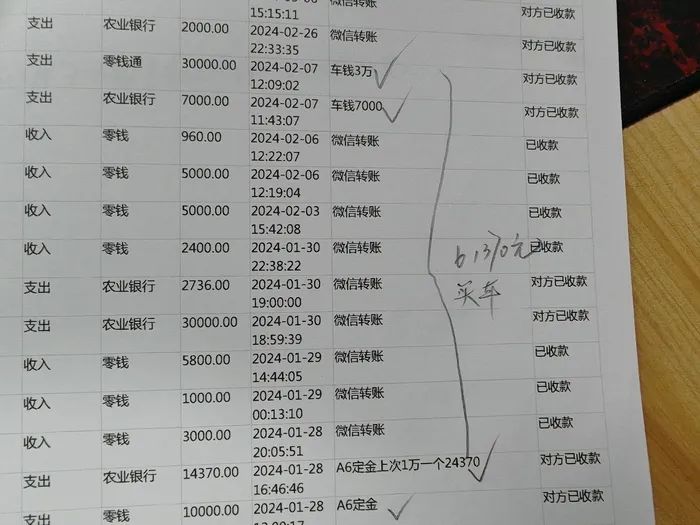 15:15:11 微信转账 对方已收款
支出 农业银行 2000.00 2024-02-26 微信转账 对方已收款
22:33:35
支出 零钱通 30000.00 2024-02-07 车钱3万 对方已收款
12:09:02
支出 农业银行 7000.00 2024-02-07 车钱7000 对方已收款
11:43:07
收入 零钱 960.00 2024-02-06 微信转账 已收款
12:22:07
收入 零钱 5000.00 2024-02-06 微信转账 已收款
12:19:04
收入 零钱 5000.00 2024-02-03 微信转账 已收款
15:42:08
收入 零钱 2400.00 2024-01-30 微信转账 已收款
22:38:22
61370元
买车
支出 农业银行 2736.00 2024-01-30 微信转账 对方已收款
19:00:00
支出 农业银行 30000.00 2024-01-30 微信转账 对方已收款
18:59:39
收入 零钱 5800.00 2024-01-29 微信转账 已收款
14:44:05
收入 零钱 1000.00 2024-01-29 微信转账 已收款
00:13:10
收入 零钱 3000.00 2024-01-28 微信转账 已收款
20:05:51
支出 农业银行 14370.00 2024-01-28 A6定金上次1万一个24370 对方已收款
16:46:46
支出 零钱 10000.00 2024-01-28 A6定金 对方已收款